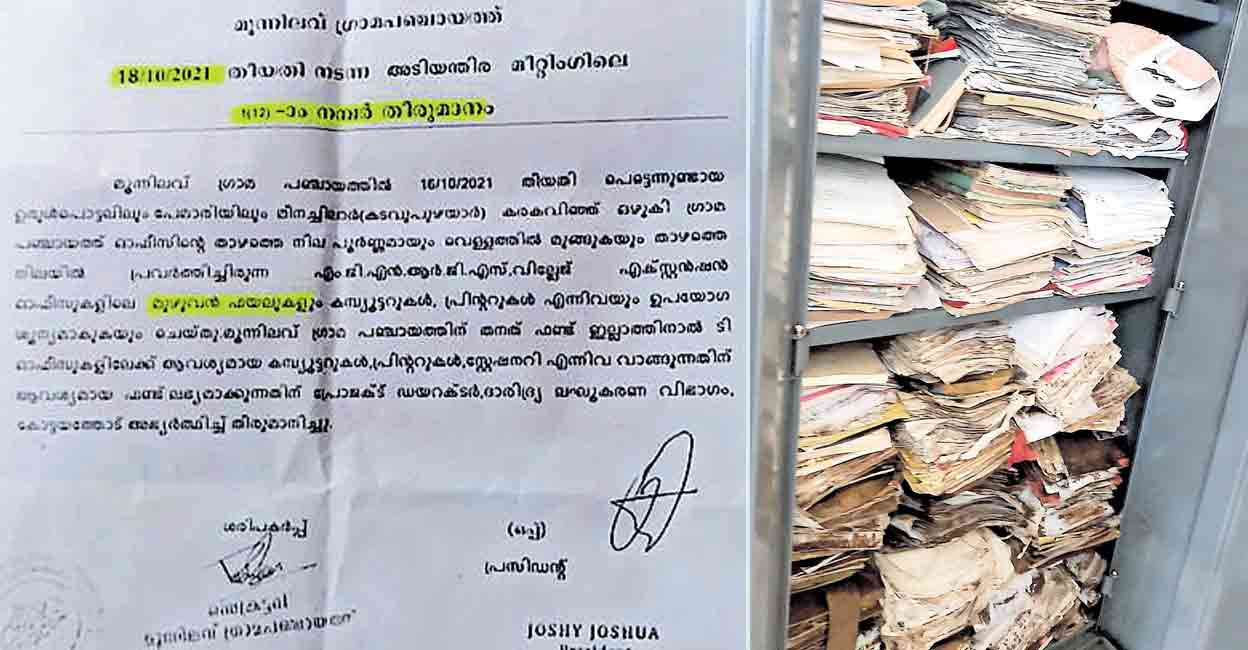 മൂന്നിലവ് ഗ്രാമപഞ്ചായത്ത്
18/10/2021 തിയതി നടന്ന അടിയന്തിര മീറ്റിംഗിലെ
1(12) -ാം നമ്പർ തിരുമാനം
മൂന്നിലവ് ഗ്രാമ പഞ്ചായത്തിൽ 16/10/2021 തിയതി പെട്ടെന്നുണ്ടായ
ഉരുൾപൊട്ടലിലും പേമാരിയിലും മീനച്ചിലാർ(കടവുപുഴയാർ) കരകവിഞ്ഞ് ഒഴുകി ഗ്രാമ
പഞ്ചായത്ത് ഓഫീസിന്റെ താഴത്തെ നില പൂർണ്ണമായും വെള്ളത്തിൽ മുങ്ങുകയും താഴത്തെ
നിലയിൽ പ്രവർത്തിച്ചിരുന്ന എം.ജി.എൻ.ആർ.ജി.എസ്,വില്ലേജ് എക്സ്റ്റൻഷൻ
ഓഫീസുകളിലെ മുഴുവൻ ഫയലുകളും കമ്പ്യൂട്ടറുകൾ, പ്രിന്ററുകൾ എന്നിവയും ഉപയോഗ
ശൂന്യമാകുകയും ചെയ്തു.മൂന്നിലവ് ഗ്രാമ പഞ്ചായത്തിന് തനത് ഫണ്ട് ഇല്ലാത്തിനാൽ ടി
ഓഫീസുകളിലേക്ക് ആവശ്യമായ കമ്പ്യൂട്ടറുകൾ,പ്രിന്ററുകൾ,സ്റ്റേഷനറി എന്നിവ വാങ്ങുന്നതിന്
ആവശ്യമായ ഫണ്ട് ലഭ്യമാക്കുന്നതിന് പ്രോജക്ട് ഡയറക്ടർ,ദാരിദ്ര്യ ലഘൂകരണ വിഭാഗം,
കോട്ടയത്തോട് അഭ്യർത്ഥിച്ച് തീരുമാനിച്ചു.
ശരിപകർപ്പ് (ഒപ്പ്)
പ്രസിഡന്റ്
സെക്രട്ടറി
മൂന്നിലവ് ഗ്രാമപഞ്ചായത്ത്
JOSHY JOSHUA
President